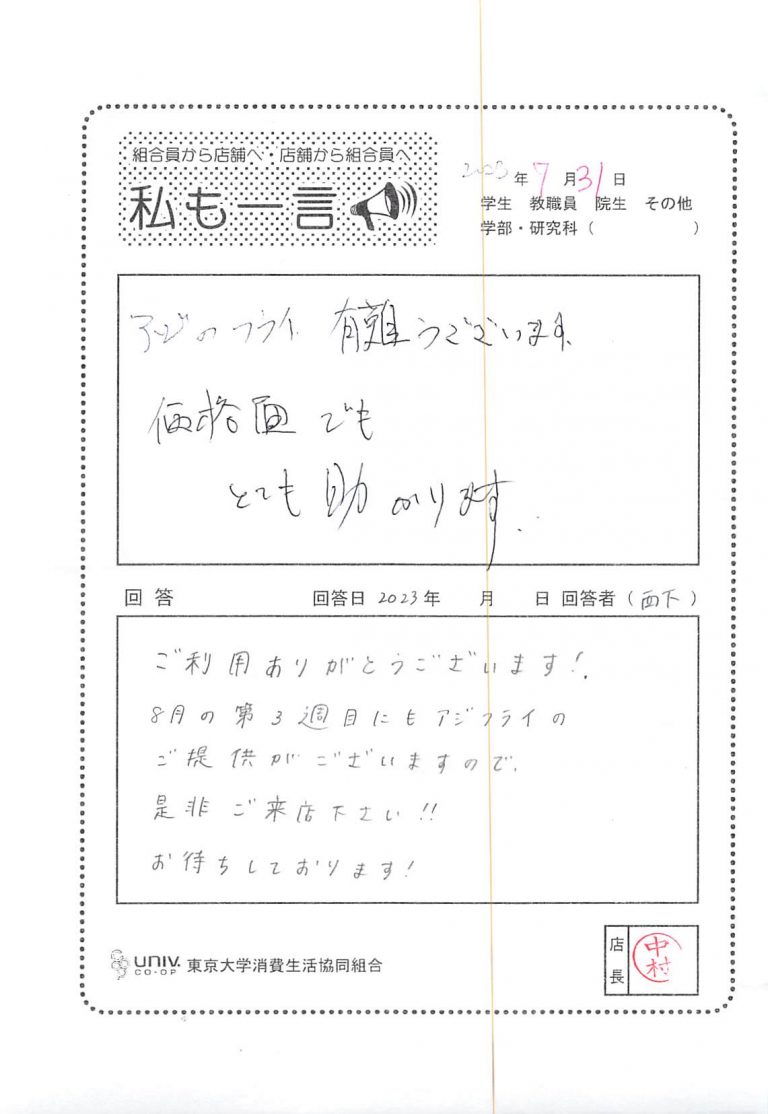 組合員から店舗へ・店舗から組合員へ
私も一言
2023年7月31日
学生 教職員 院生 その他
学部・研究科（ ）
アジのフライ 有難うございます。
価格面でも
とても助かります。
回答 回答日 2023年 月 日 回答者（西下）
ご利用ありがとうございます！
8月の第3週目にもアジフライの
ご提供がございますので、
是非ご来店下さい！！
お待ちしております！
UNIV. CO-OP 東京大学消費生活協同組合
店長 中村